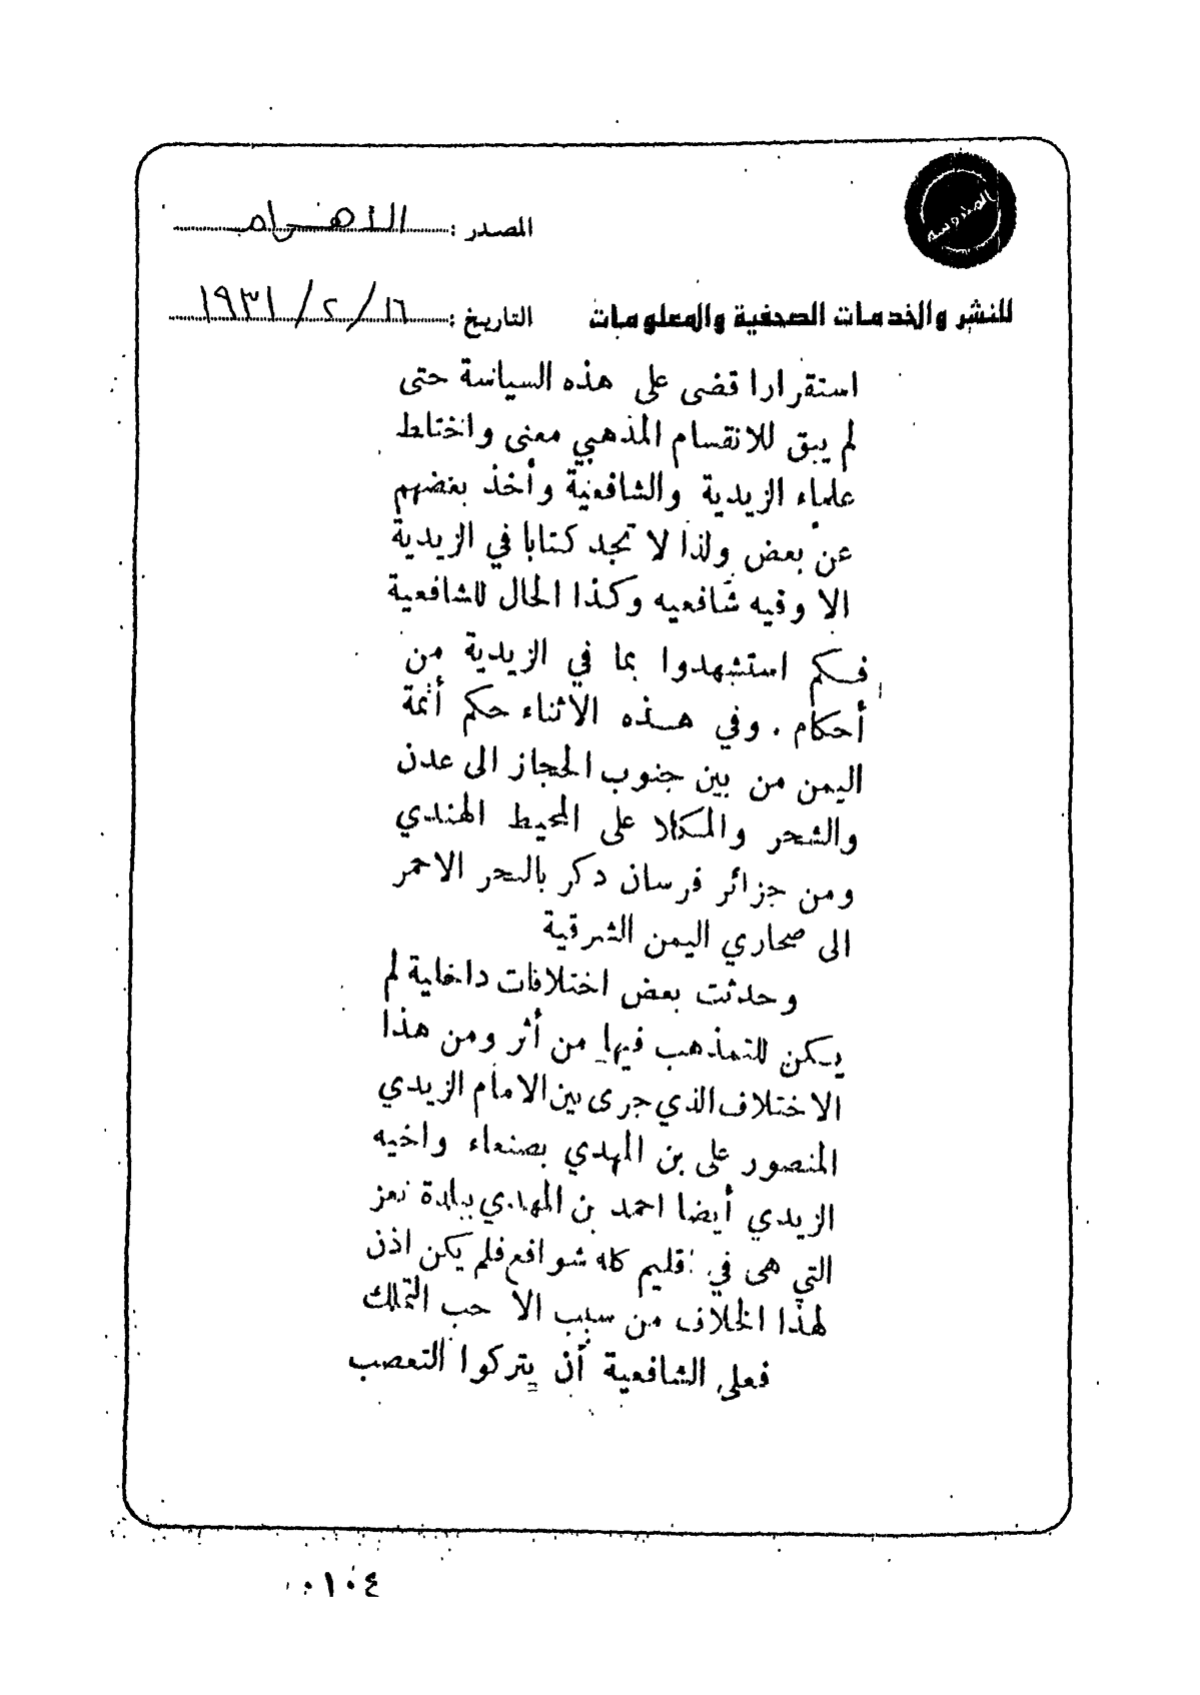 المحروسة
المصدر : الأهرام
للنشر والخدمات الصحفية والمعلومات
التاريخ : ١٦ / ٢ / ١٩٣١
استقرارا قضى على هذه السياسة حتى
لم يبق للانقسام المذهبي معنى واختلط
علماء الزيدية والشافعية وأخذ بعضهم
عن بعض ولذا لا تجد كتابا في الزيدية
الا وفيه شافعيه وكذا الحال للشافعية
فكم استشهدوا بما في الزيدية من
أحكام . وفي هذه الاثناء حكم أئمة
اليمن من بين جنوب الحجاز الى عدن
والشحر والمكلا على المحيط الهندي
ومن جزائر فرسان دكر بالبحر الاحمر
الى صحاري اليمن الشرقية
وحدثت بعض اختلافات داخلية لم
يكن للتمذهب فيها من أثر ومن هذا
الاختلاف الذي جرى بين الامام الزيدي
المنصور على بن المهدي بصنعاء واخيه
الزيدي أيضا احمد بن المهدي ببلدة تعز
التي هى في اقليم كله شوافع فلم يكن اذن
لهذا الخلاف من سبب الا حب التملك
فعلى الشافعية أن يتركوا التعصب
٠١٠٤